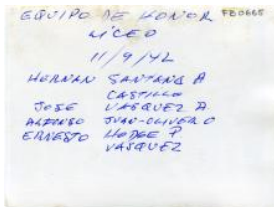 EQUIPO DE HONOR FB0665
LICEO
11/9/42
HERNAN SANTANA A
CASTILLO
JOSE VASQUEZ A
ALFONSO JUAN-OLIVER O
ERNESTO HODGE P.
VASQUEZ